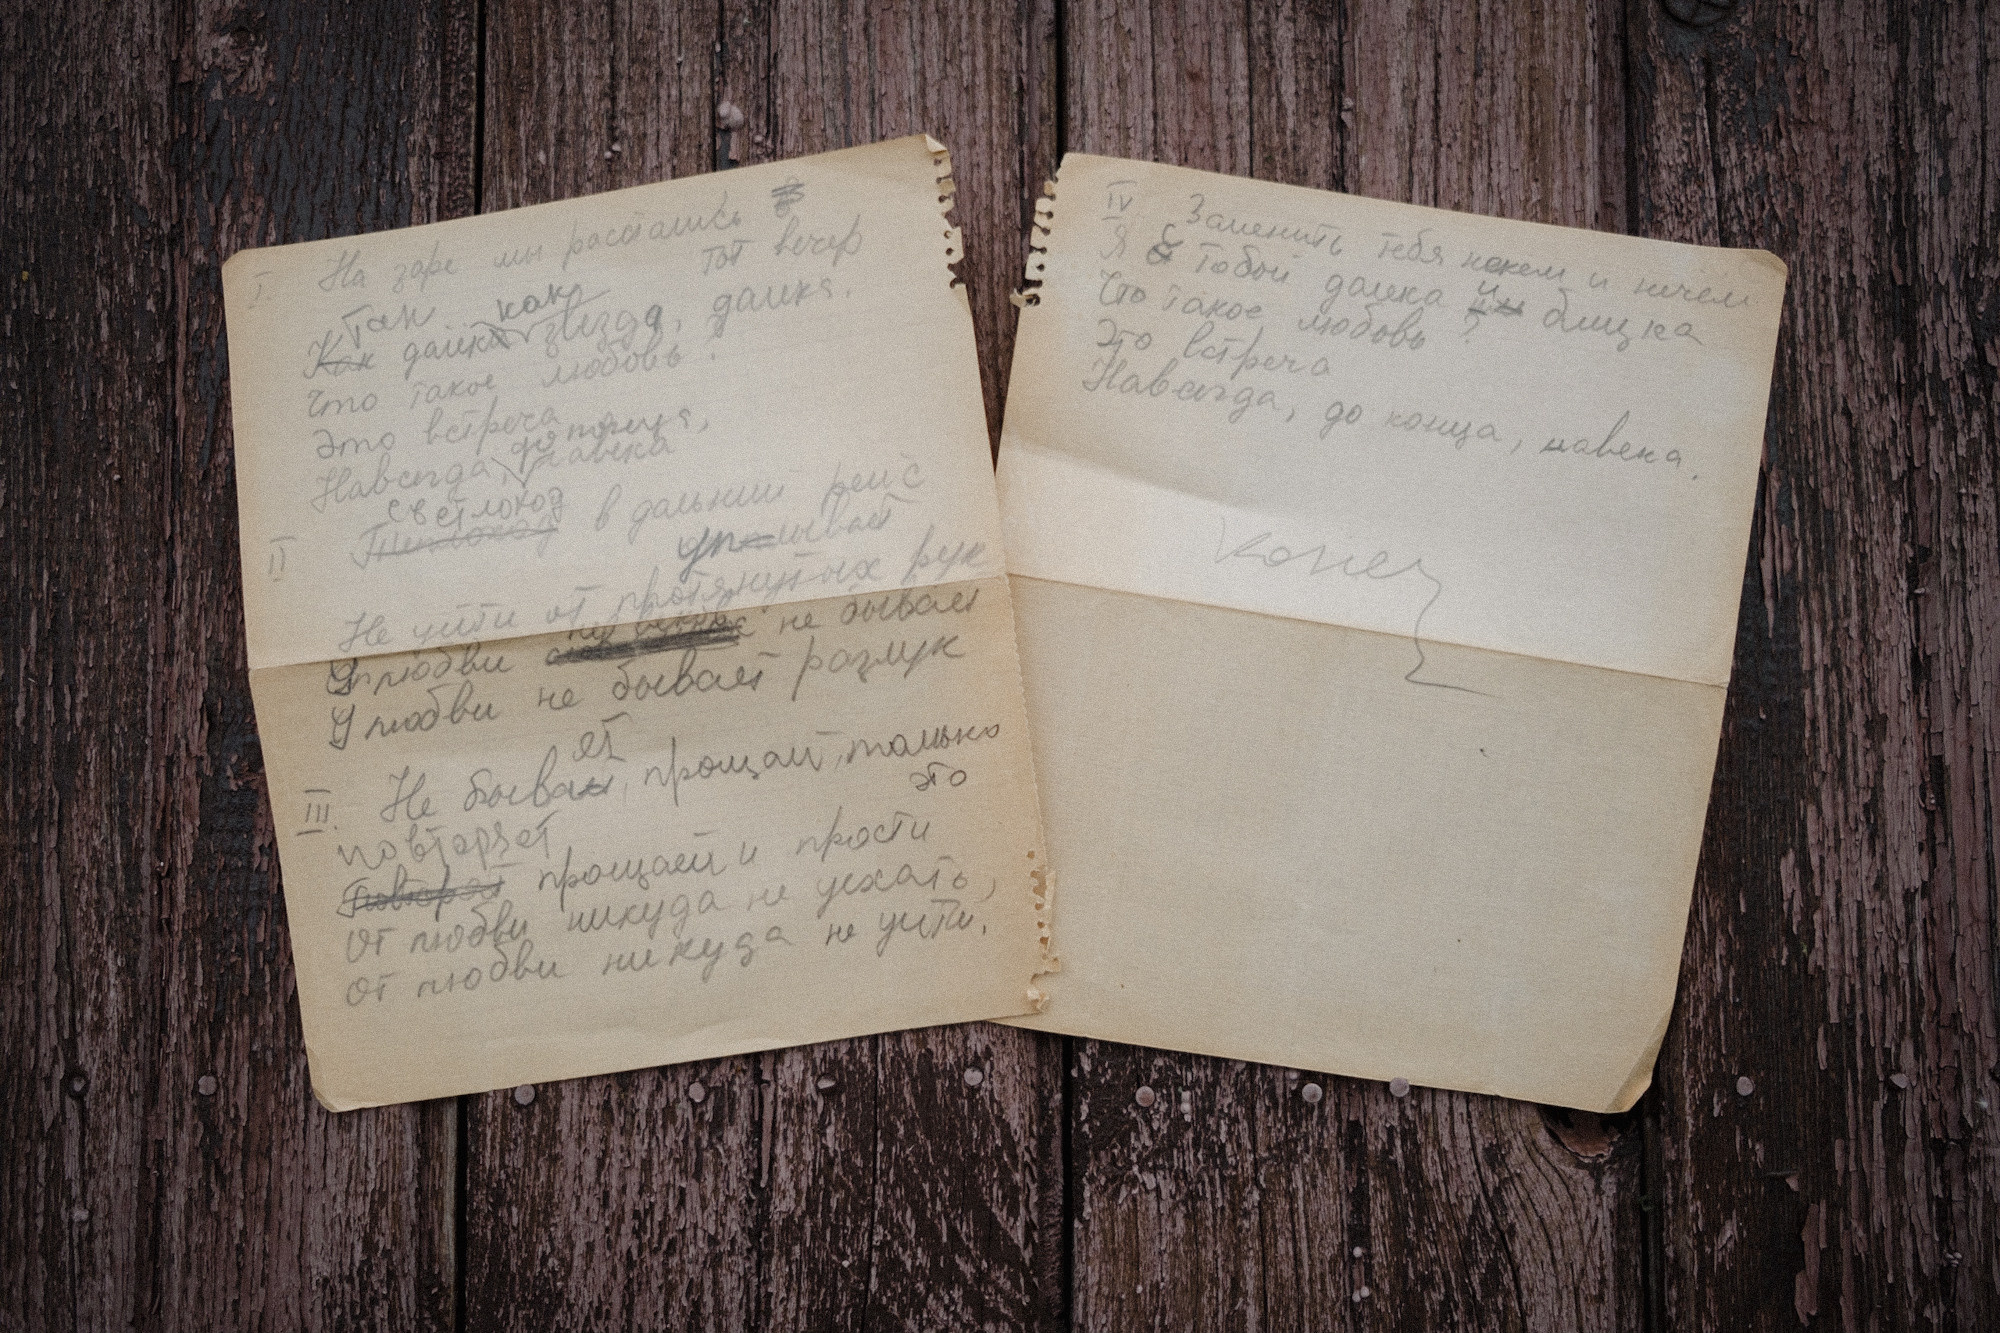 I. На заре мы растались
тот вечер
Так как
Как далека звезда, далека.
Что такое любовь?
Это встреча
до конца,
Навсегда, навека
светлоход
II Теплоход в дальний рейс
уплывает
Не уйти от протянутых рук
У любви не бывает
У любви не бывает разлук
ет
III. Не бывает, прощай, только
это
повторяет
Повторяет прощай и прости
От любви никуда не уехать,
От любви никуда не уйти.
IV Заменить тебя некем и ничем
Я с тобой далека и близка
Что такое любовь?
Это встреча
Навсегда, до конца, навека.
Конец